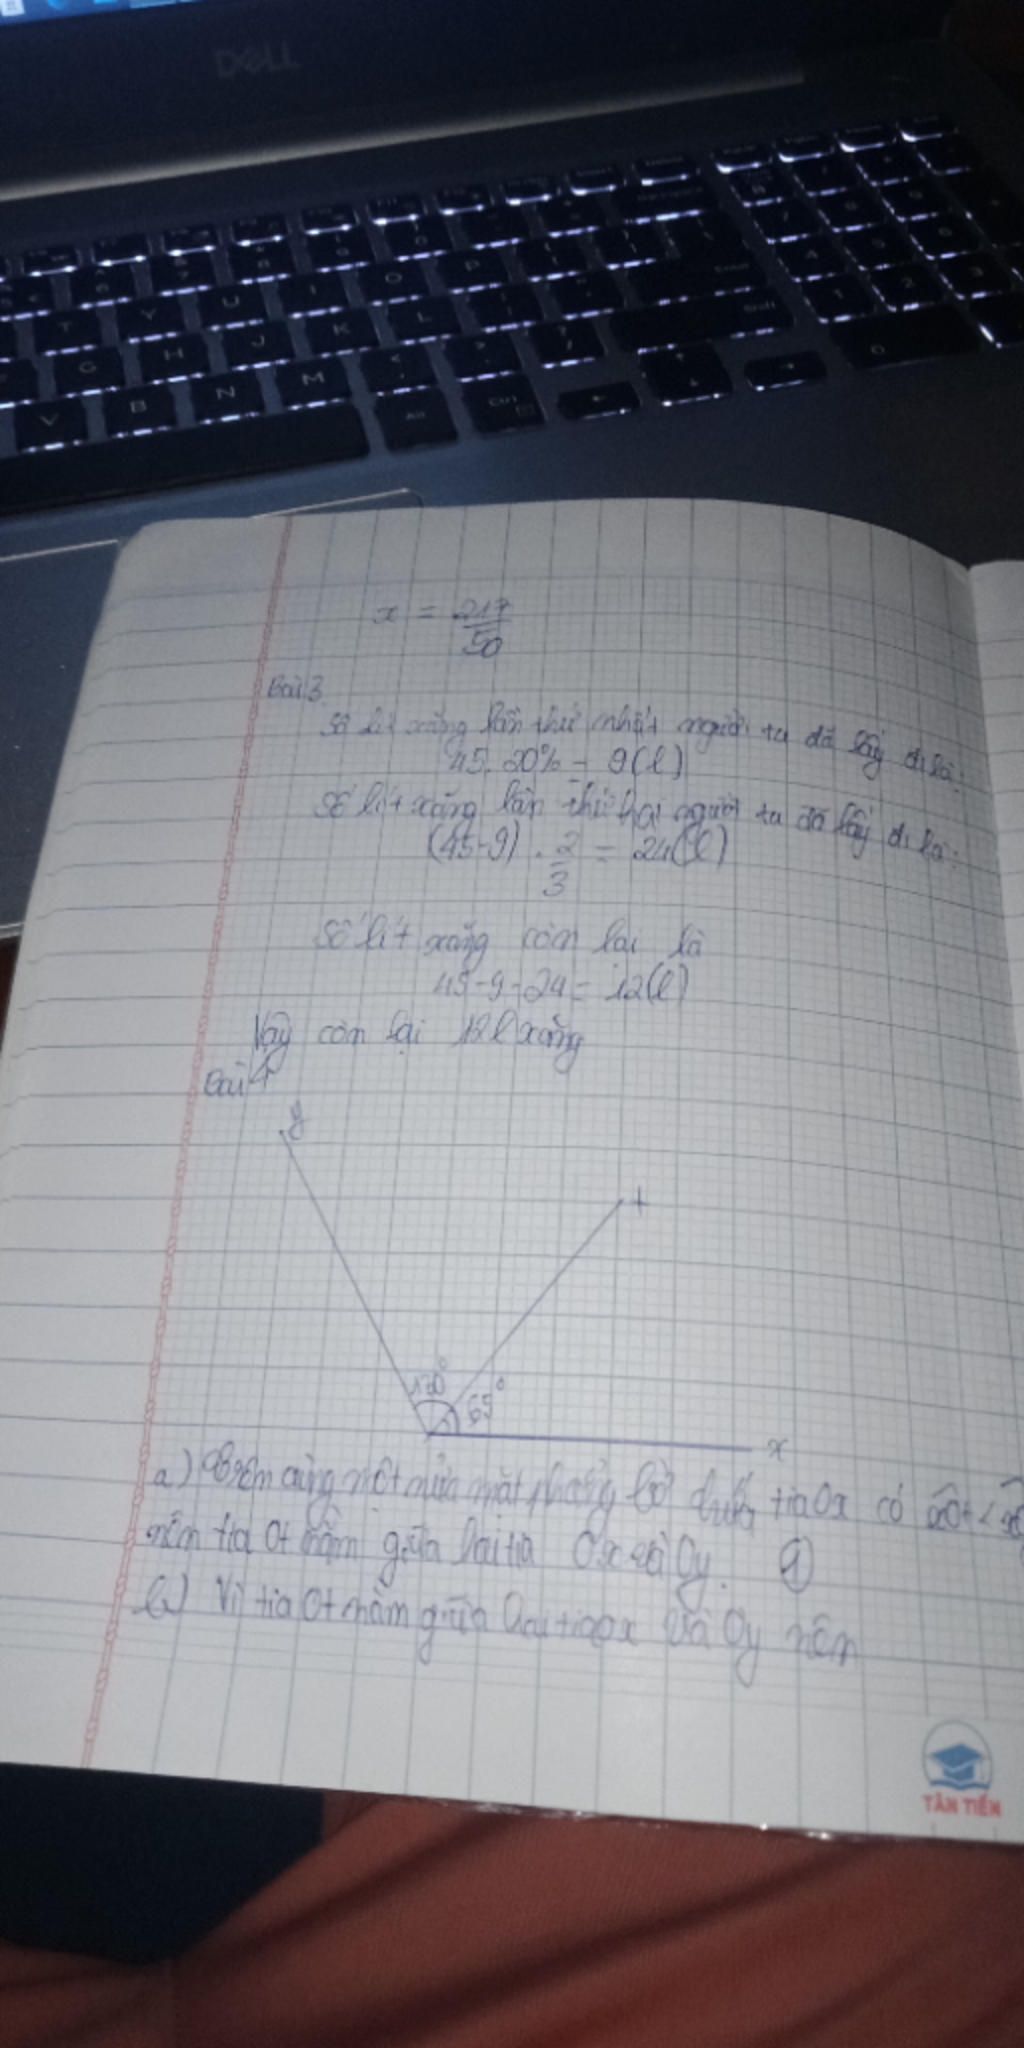 DELL
x = 217/50
Bài 3
Số lít xăng lần thứ nhất người ta đã lấy đi là:
45.20% = 9(l)
Số lít xăng lần thứ hai người ta đã lấy đi là:
(45-9) . 2/3 = 24(l)
Số lít xăng còn lại là
45-9-24 = 12(l)
Vậy còn lại 12l xăng
Bài 4
y
t
130°
65°
x
a) Trên cùng một nửa mặt phẳng bờ chứa tia Ox có xOt <
nên tia Ot nằm giữa hai tia Ox và Oy. (1)
b) Vì tia Ot nằm giữa hai tia Ox và Oy nên
TÂN TIẾN